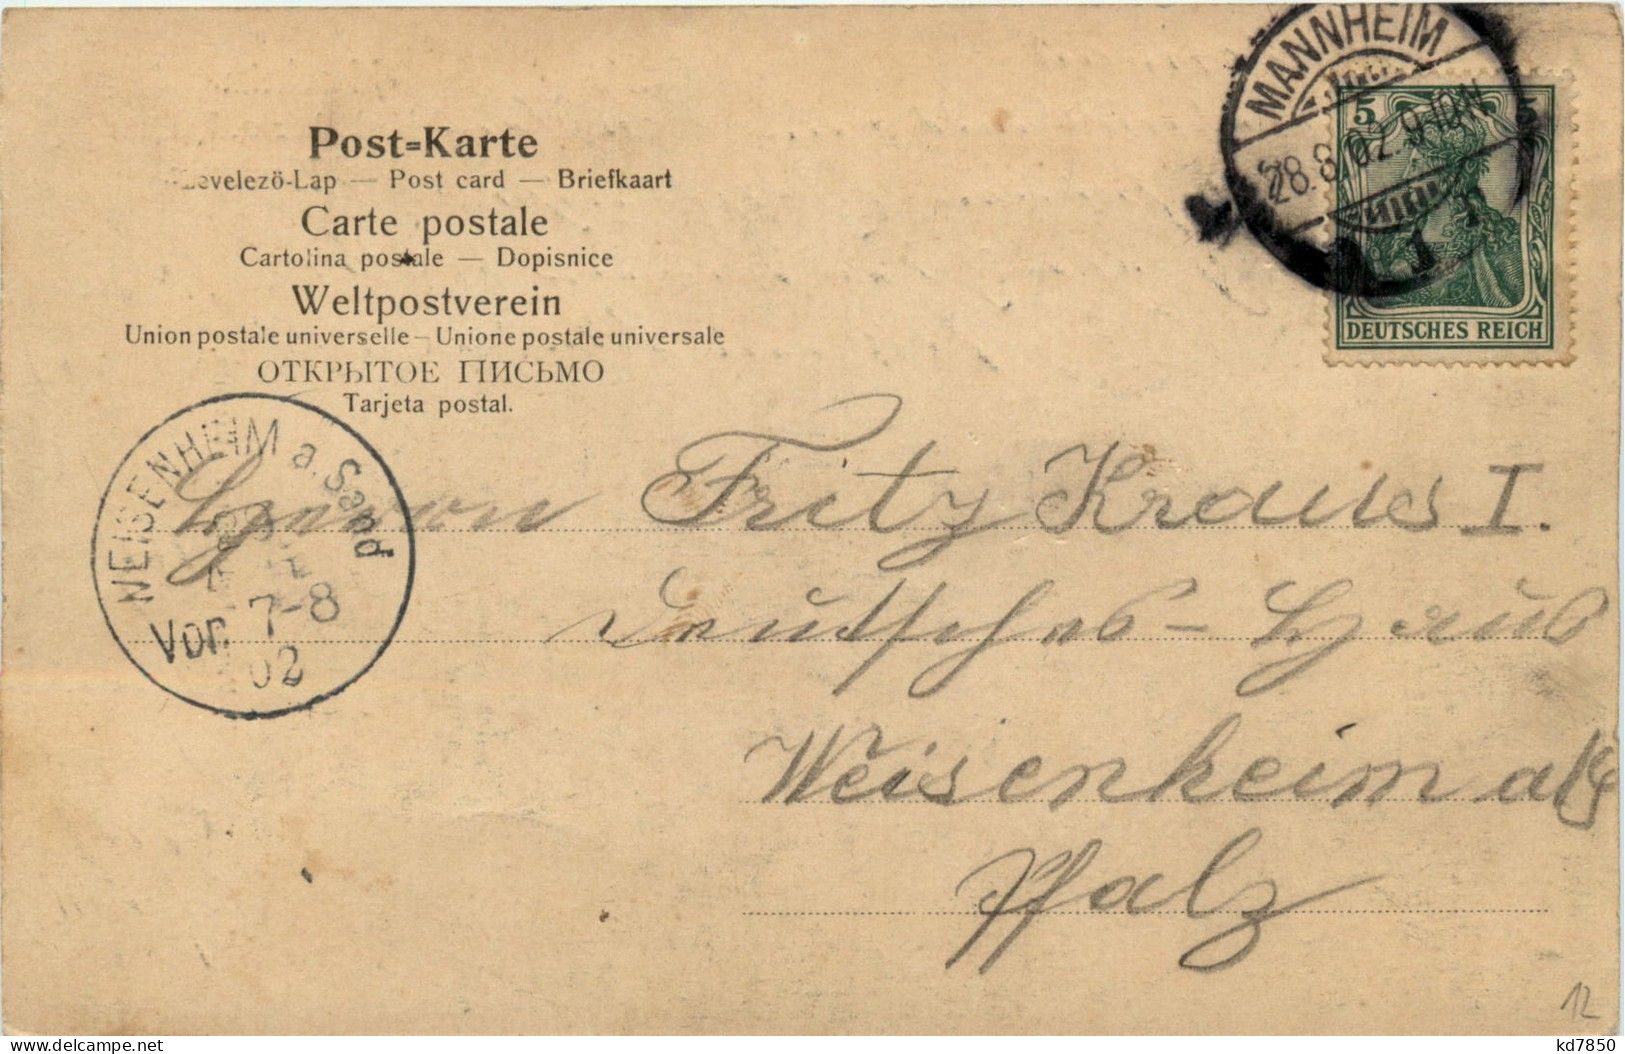 Post=Karte
Levelezö-Lap — Post card — Briefkaart
Carte postale
Cartolina postale — Dopisnice
Weltpostverein
Union postale universelle – Unione postale universale
ОТКРЫТОЕ ПИСЬМО
Tarjeta postal.
MANNHEIM
28.8.02. 9-10 N
1
5
5
DEUTSCHES REICH
WEISENHEIM a. Sand
Vor. 7-8
02
Herrn Fritz Kraus I.
Deutsches-Haus
Weisenheim a/S
Pfalz
12
kd7850